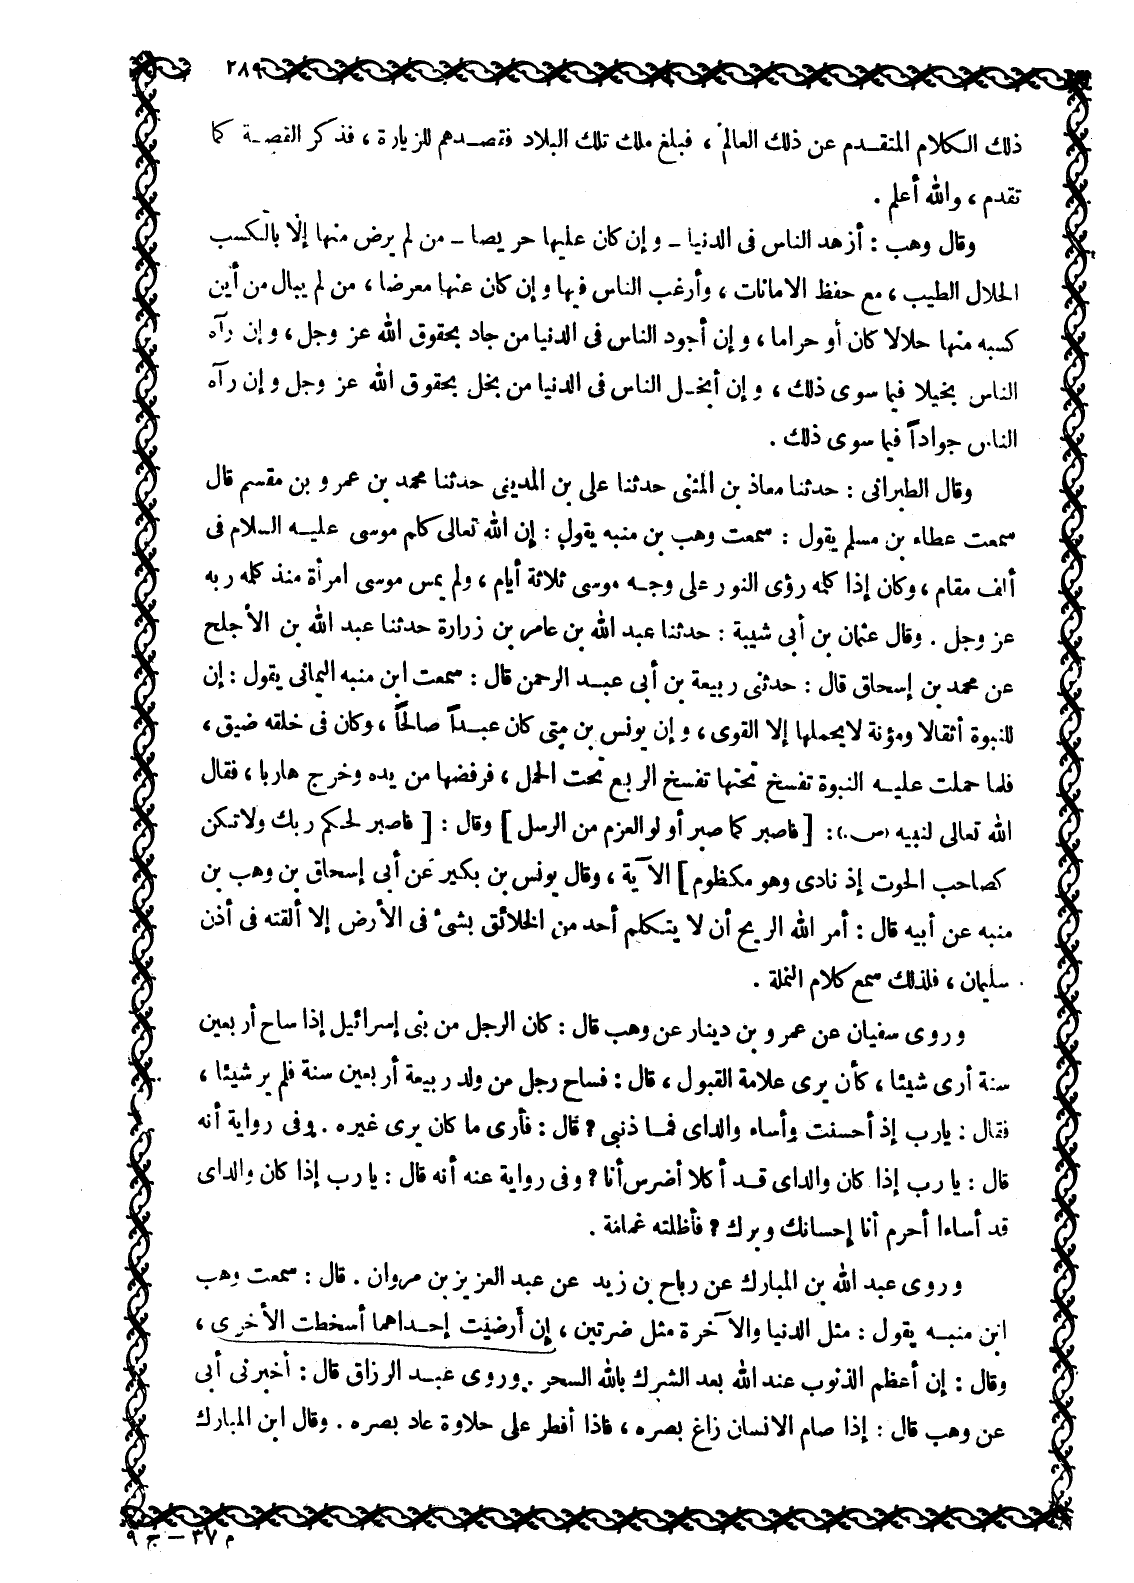 ٢٨٩
ذلك الكلام المتقدم عن ذلك العالم ، فبلغ ملك تلك البلاد فقصدهم للزيارة ، فذكر القصة كما
تقدم ، والله أعلم .
وقال وهب : أزهد الناس فى الدنيا ـ وإن كان عليها حريصا ـ من لم يرض منها إلا بالكسب
الحلال الطيب ، مع حفظ الامانات ، وأرغب الناس فيها وإن كان عنها معرضا ، من لم يبال من أين
كسبه منها حلالا كان أو حراما ، وإن أجود الناس فى الدنيا من جاد بحقوق الله عز وجل ، وإن رآه
الناس بخيلا فيما سوى ذلك ، وإن أبخل الناس فى الدنيا من بخل بحقوق الله عز وجل وإن رآه
الناس جواداً فيما سوى ذلك .
وقال الطبرانى : حدثنا معاذ بن المثنى حدثنا على بن المدينى حدثنا محمد بن عمرو بن مقسم قال
سمعت عطاء بن مسلم يقول : سمعت وهب بن منبه يقول : إن الله تعالى كلم موسى عليه السلام فى
ألف مقام ، وكان إذا كلمه رؤى النور على وجه موسى ثلاثة أيام ، ولم يمس موسى امرأة منذ كلمه ربه
عز وجل . وقال عثمان بن أبى شيبة : حدثنا عبد الله بن عامر بن زرارة حدثنا عبد الله بن الأجلح
عن محمد بن إسحاق قال : حدثنى ربيعة بن أبى عبد الرحمن قال : سمعت ابن منبه اليمانى يقول : إن
للنبوة أثقالا ومؤنة لايحملها إلا القوى ، وإن يونس بن متى كان عبداً صالحاً ، وكان فى خلقه ضيق ،
فلما حملت عليه النبوة تفسخ تحتها تفسخ الربع تحت الحمل ، فرفضها من يده وخرج هاربا ، فقال
الله تعالى لنبيه (ص.) : [ فاصبر كما صبر أولو العزم من الرسل ] وقال : [ فاصبر لحكم ربك ولاتكن
كصاحب الحوت إذ نادى وهو مكظوم ] الآية ، وقال يونس بن بكير عن أبى إسحاق بن وهب بن
منبه عن أبيه قال : أمر الله الريح أن لا يتكلم أحد من الخلائق بشئ فى الأرض إلا ألقته فى أذن
سليمان ، فلذلك سمع كلام النملة .
وروى سفيان عن عمرو بن دينار عن وهب قال : كان الرجل من بنى إسرائيل إذا ساح أربعين
سنة أرى شيئا ، كأن يرى علامة القبول ، قال : فساح رجل من ولد ربيعة أربعين سنة فلم ير شيئا ،
فقال : يارب إذ أحسنت وأساء والداى فما ذنبى ? قال : فأرى ما كان يرى غيره . وفى رواية أنه
قال : يا رب إذا كان والداى قد أكلا أضرس أنا ? وفى رواية عنه أنه قال : يا رب إذا كان والداى
قد أساءا أحرم أنا إحسانك وبرك ? فأظلته غمامة .
وروى عبد الله بن المبارك عن رباح بن زيد عن عبد العزيز بن مروان . قال : سمعت وهب
ابن منبه يقول : مثل الدنيا والآخرة مثل ضرتين ، إن أرضيت إحداهما أسخطت الأخرى ،
وقال : إن أعظم الذنوب عند الله بعد الشرك بالله السحر . وروى عبد الرزاق قال : أخبرنى أبى
عن وهب قال : إذا صام الانسان زاغ بصره ، فاذا أفطر على حلاوة عاد بصره . وقال ابن المبارك
م ٣٧ – ج ٩